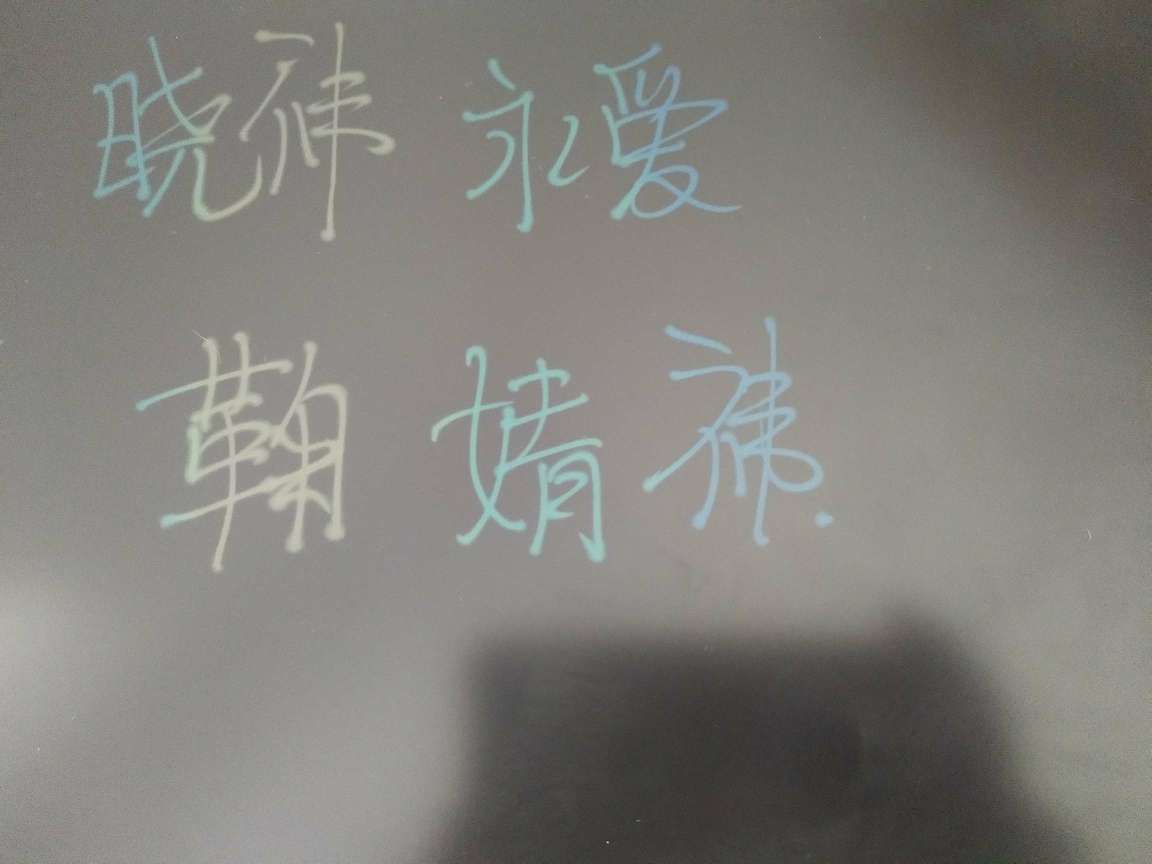 晓祎 永爱
鞠婧祎.